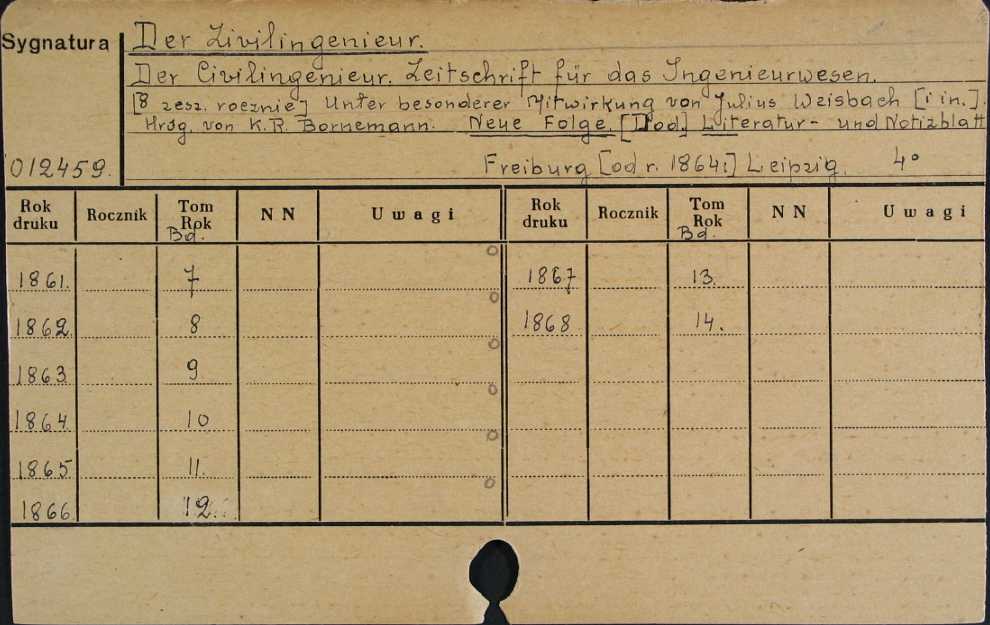 Sygnatura
Der Zivilingenieur.
Der Civilingenieur. Zeitschrift für das Ingenieurwesen.
[8 zesz. rocznie] Unter besonderer Mitwirkung von Julius Weisbach [i in.].
Hrsg. von K.R. Bornemann. Neue Folge. [Dod.] Literatur- und Notizblatt
012459. Freiburg [od r. 1864:] Leipzig. 4°
Rok druku Rocznik Tom Rok Bd. NN Uwagi Rok druku Rocznik Tom Rok Bd. NN Uwagi
1861. 7 1867 13.
1862 8 1868 14.
1863 9
1864 10
1865 11.
1866 12.